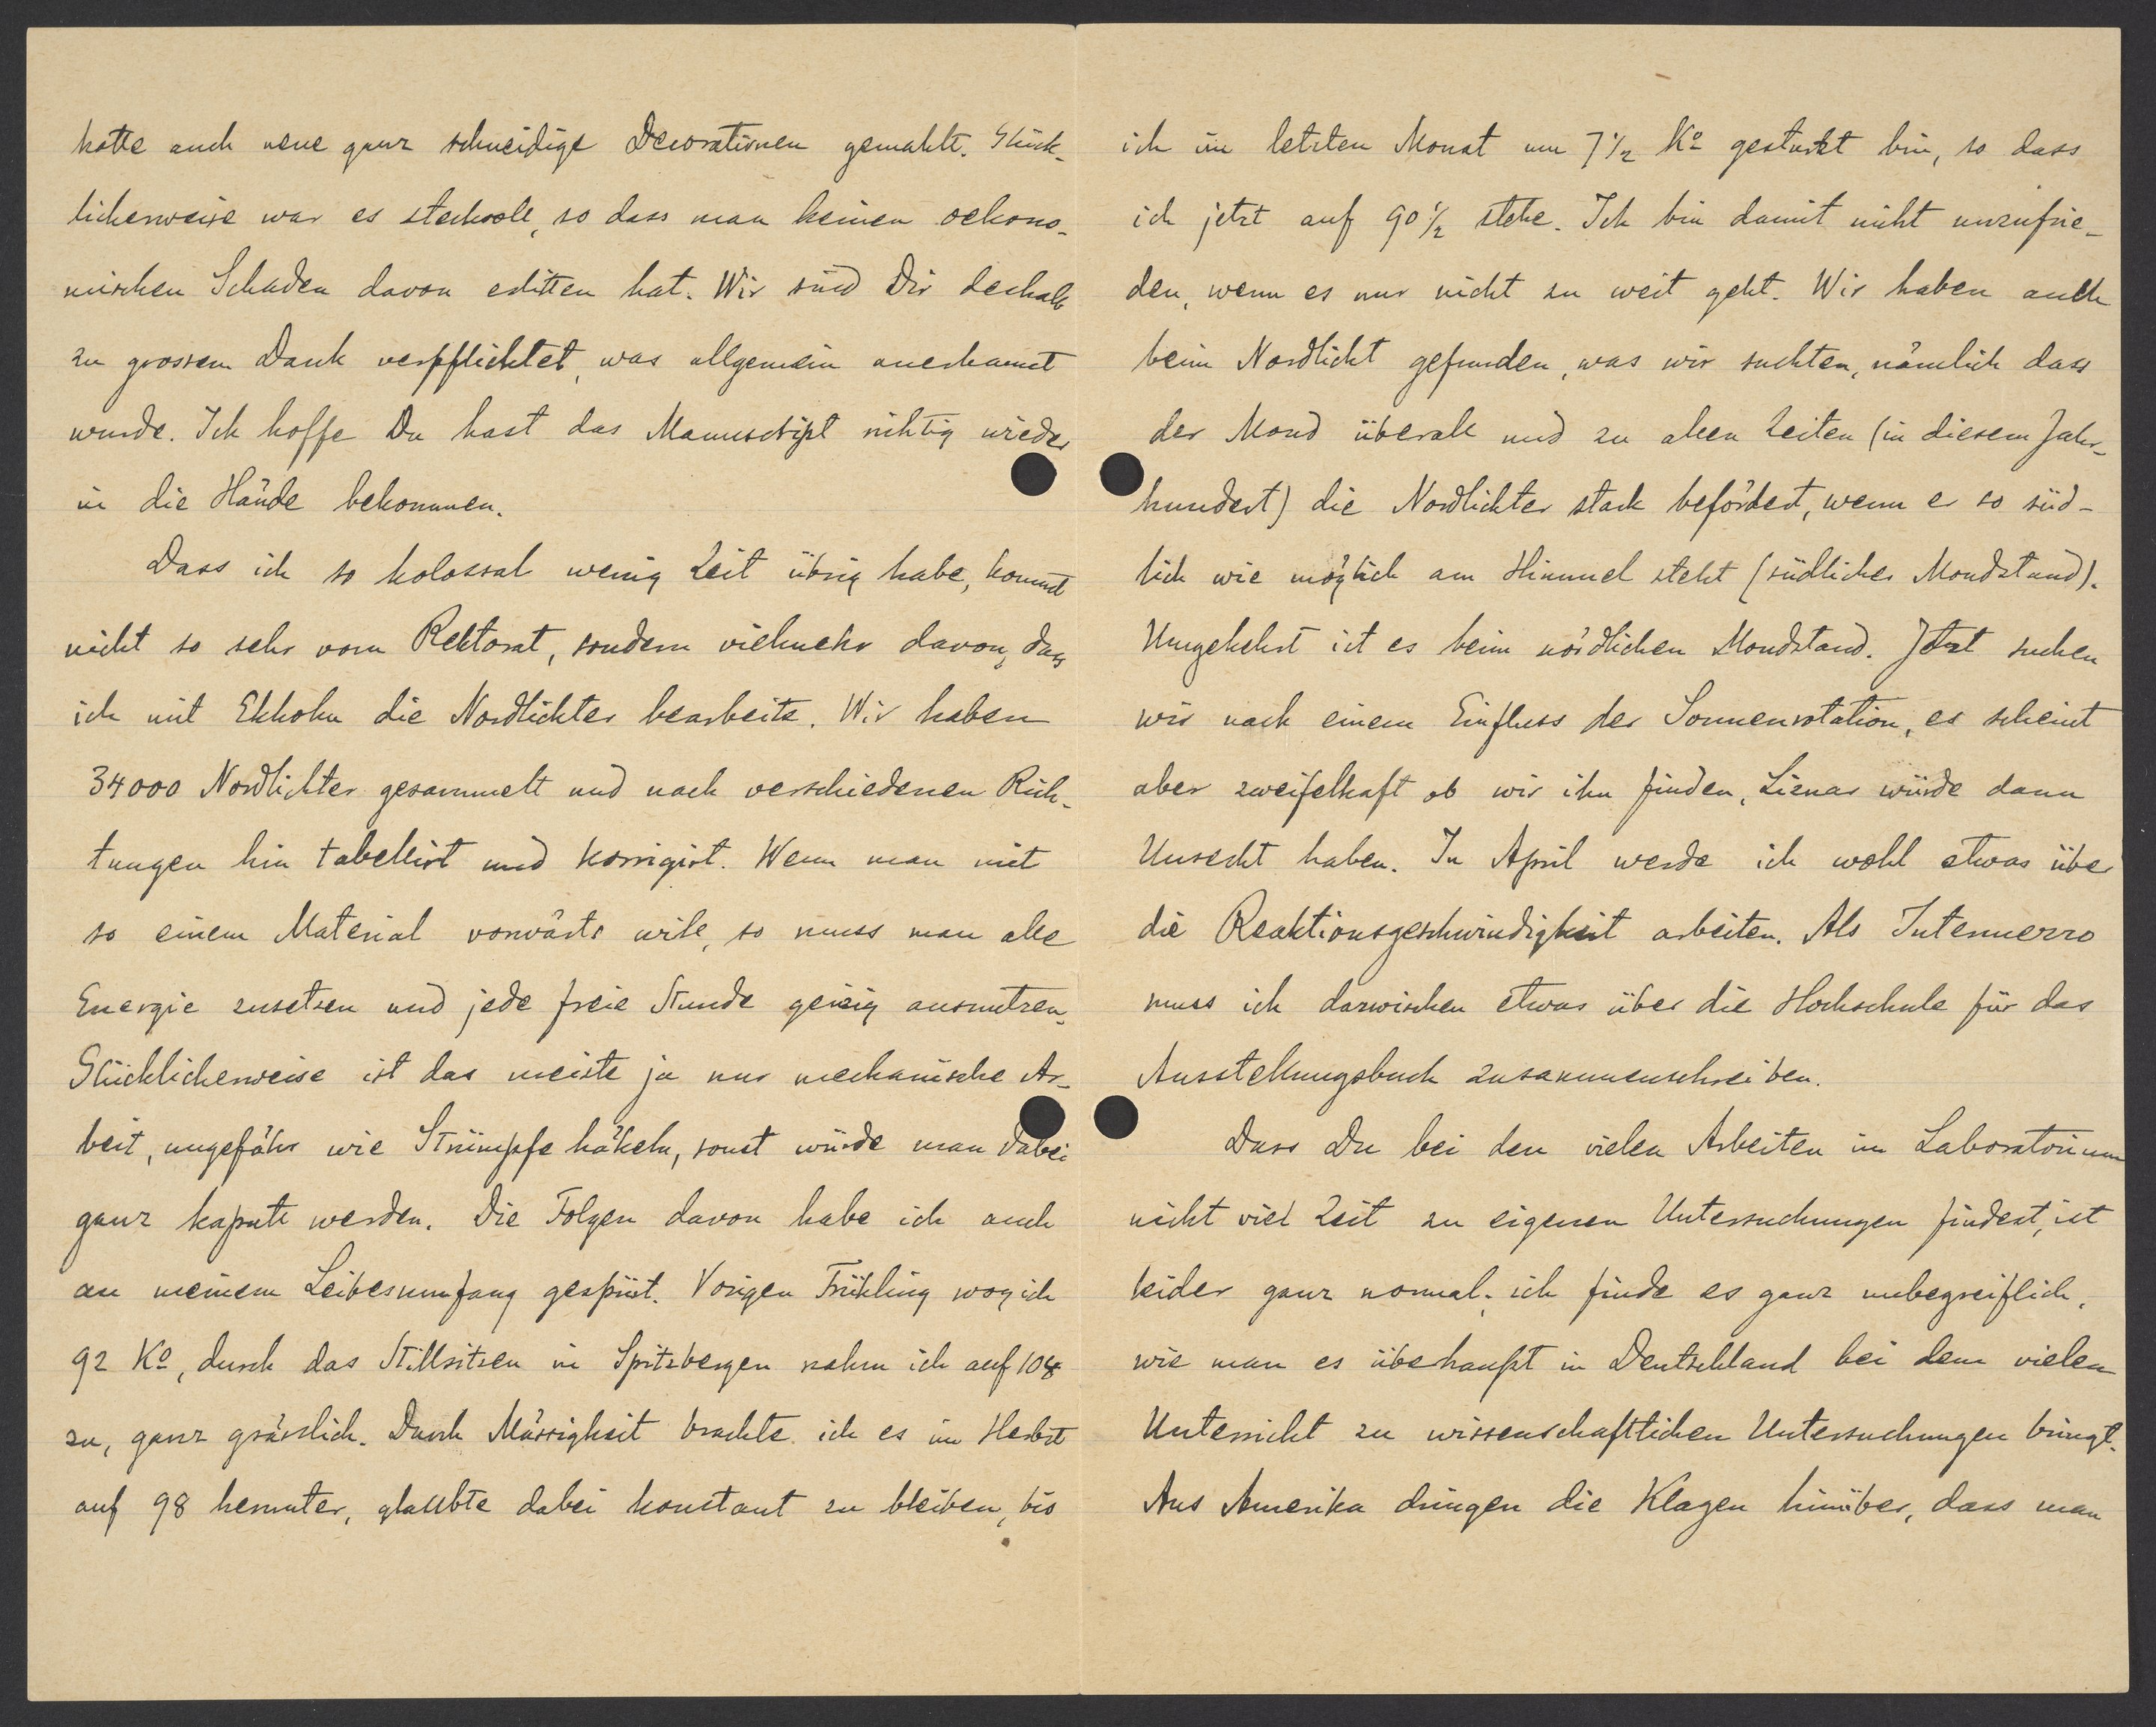 hatte auch neue ganz schneidige Decorationen gemahlt. Glück-
licherweise war es steckvoll, so dass man keinen oekono-
mischen Schaden davon erlitten hat. Wir sind Dir deshalb
zu grossem Dank verpflichtet, was allgemein anerkannt
wurde. Ich hoffe Du hast das Manuscript richtig wieder
in die Hände bekommen.
Dass ich so kolossal wenig Zeit übrig habe, kommt
nicht so sehr vom Rektorat, sondern vielmehr davon, dass
ich mit Ekholm die Nordlichter bearbeite. Wir haben
34000 Nordlichter gesammelt und nach verschiedenen Rich-
tungen hin tabellirt und korrigirt. Wenn man mit
so einem Material vorwärts will, so muss man alle
Energie zusetzen und jede freie Stunde geizig ausnutzen.
Glücklicherweise ist das meiste ja nur mechanische Ar-
beit, ungefähr wie Strümpfe häkeln, sonst würde man dabei
ganz kaputt werden. Die Folgen davon habe ich auch
an meinem Leibesumfang gespürt. Vorigen Frühling wog ich
92 Ko, durch das Stillsitzen in Spitzbergen nahm ich auf 108
zu, ganz grässlich. Durch Mässigkeit brachte ich es im Herbst
auf 98 herunter, glaubte dabei konstant zu bleiben, bis
ich im letzten Monat um 7 1/2 Ko gesturtzt bin, so dass
ich jetzt auf 90 1/2 stehe. Ich bin damit nicht unzufrie-
den, wenn es nur nicht zu weit geht. Wir haben auch
beim Nordlicht gefunden, was wir suchten, nämlich dass
der Mond überall und zu allen Zeiten (in diesem Jahr-
hundert) die Nordlichter stark befördert, wenn er so süd-
lich wie möglich am Himmel steht (südlicher Mondstand).
Umgekehrt ist es beim nördlichen Mondstand. Jetzt suchen
wir nach einem Einfluss der Sonnenrotation, es scheint
aber zweifelhaft ob wir ihn finden, Liznar würde dann
Unrecht haben. In April werde ich wohl etwas über
die Reaktionsgeschwindigkeit arbeiten. Als Intermezzo
muss ich dazwischen etwas über die Hochschule für das
Ausstellungsbuch zusammenschreiben.
Dass Du bei den vielen Arbeiten im Laboratorium
nicht viel Zeit zu eigenen Untersuchungen findest, ist
leider ganz normal; ich finde es ganz unbegreiflich,
wie man es überhaupt in Deutschland bei dem vielen
Unterricht zu wissenschaftlichen Untersuchungen bringt.
Aus Amerika dringen die Klagen hinüber, dass man